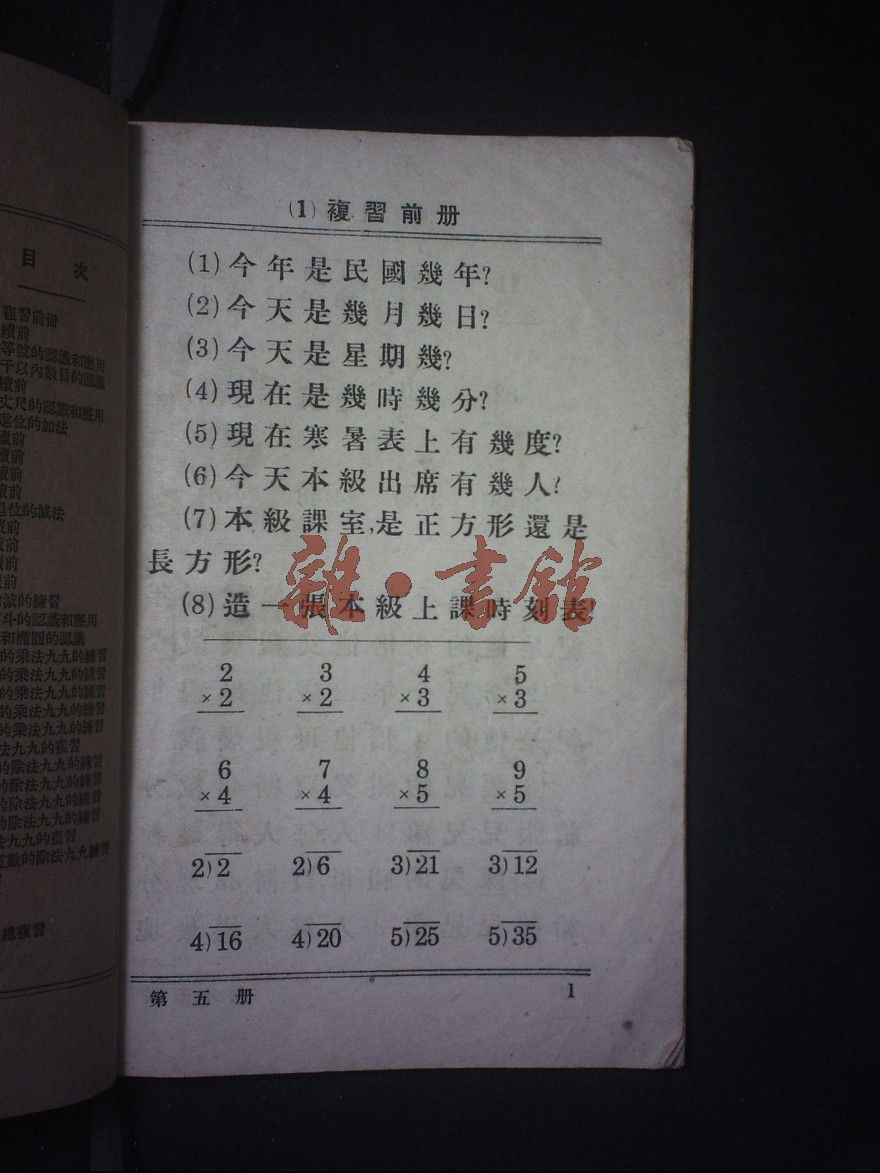 目次
複習前冊
續前
等號的認識和應用
千以內數目的認識
續前
丈尺的認識和應用
進位的加法
續前
續前
續前
續前
退位的減法
續前
續前
續前
續前
減的練習
斗的認識和應用
和橢圓的認識
的乘法九九的練習
的乘法九九的練習
的乘法九九的練習
的乘法九九的練習
的乘法九九的練習
法九九的複習
的除法九九的練習
的除法九九的練習
的除法九九的練習
的除法九九的練習
法九九的複習
數的除法九九練習
總複習
(1) 複習前册
(1) 今年是民國幾年?
(2) 今天是幾月幾日?
(3) 今天是星期幾?
(4) 現在是幾時幾分?
(5) 現在寒暑表上有幾度?
(6) 今天本級出席有幾人?
(7) 本級課室,是正方形還是
長方形?
(8) 造一張本級上課時刻表!
雜·書館
2 3 4 5
×2 ×2 ×3 ×3
6 7 8 9
×4 ×4 ×5 ×5
2)2 2)6 3)21 3)12
4)16 4)20 5)25 5)35
第五册 1